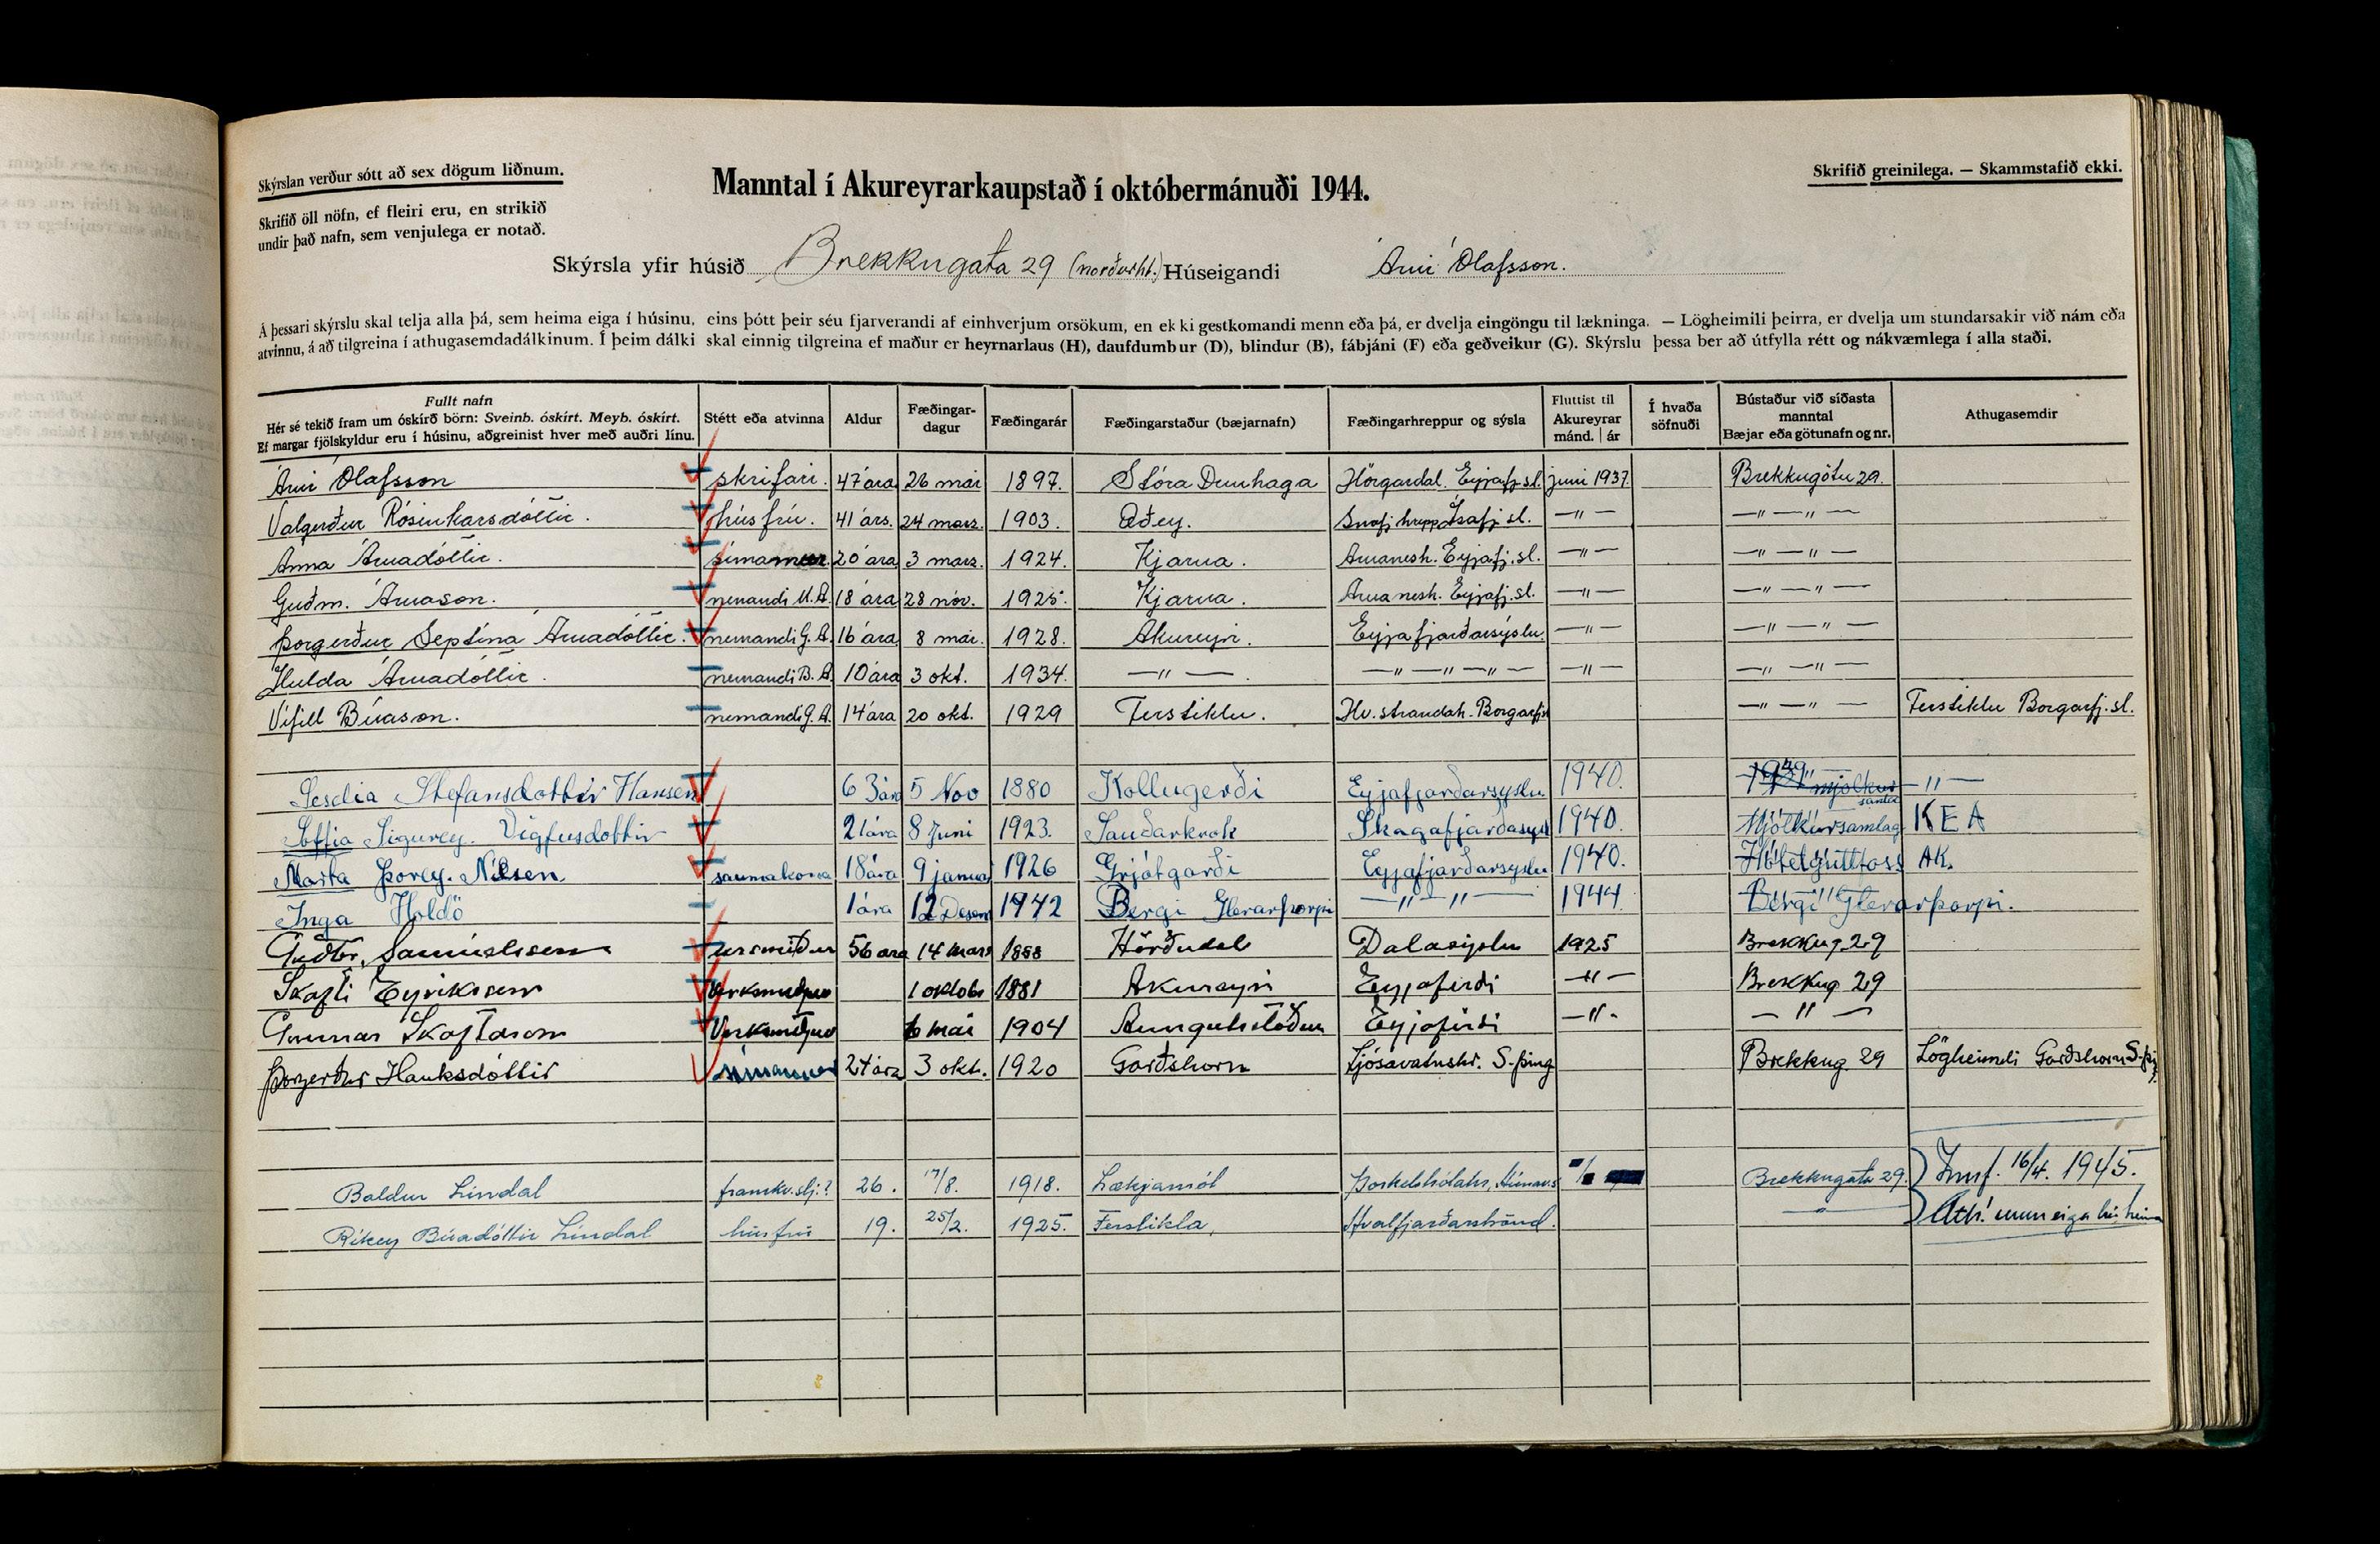 Skýrslan verður sótt að sex dögum liðnum.
Skrifið öll nöfn, ef fleiri eru, en strikið
undir það nafn, sem venjulega er notað.
Manntal í Akureyrarkaupstað í októbermánuði 1944.
Skrifið greinilega. — Skammstafið ekki.
Skýrsla yfir húsið Brekkugata 29 (norðurht.) Húseigandi Árni Ólafsson.
Á þessari skýrslu skal telja alla þá, sem heima eiga í húsinu, eins þótt þeir séu fjarverandi af einhverjum orsökum, en ekki gestkomandi menn eða þá, er dvelja eingöngu til lækninga. — Lögheimili þeirra, er dvelja um stundarsakir við nám eða
atvinnu, á að tilgreina í athugasemdadálkinum. Í þeim dálki skal einnig tilgreina ef maður er heyrnarlaus (H), daufdumbur (D), blindur (B), fábjáni (F) eða geðveikur (G). Skýrslu þessa ber að útfylla rétt og nákvæmlega í alla staði.
Fullt nafn
Hér sé tekið fram um óskírð börn: Sveinb. óskírt. Meyb. óskírt.
Ef margar fjölskyldur eru í húsinu, aðgreinist hver með auðri línu.
Stétt eða atvinna
Aldur
Fæðingar-
dagur
Fæðingarár
Fæðingarstaður (bæjarnafn)
Fæðingarhreppur og sýsla
Fluttist til
Akureyrar
mánd. | ár
Í hvaða
söfnuði
Bústaður við síðasta
manntal
Bæjar eða götunafn og nr.
Athugasemdir
Árni Ólafsson skrifari. 47 ára 26 maí 1897. Stóra Dunhaga Hörgardal. Eyjafj.sl. juni 1937 Brekkugötu 29.
Valgerður Rósinkarsdóttir. húsfrú. 41 árs. 24 marz. 1903. Æðey. Snæfj.hrepp Ísafj.sl. —"— —"—"—
Anna Árnadóttir. 20 ára 3 marz. 1924. Kjarna. Arnanesh. Eyjafj.sl. —"— —"—"—
Guðm. Árnason. nemandi M.A. 18 ára 28 nóv. 1925. Kjarna. Arnanesh. Eyjafj.sl. —"— —"—"—
Þorgerður Septína Árnadóttir. nemandi G.A. 16 ára 8 maí. 1928. Akureyri. Eyjafjarðarsýslu. —"— —"—"—
Hulda Árnadóttir. nemandi B.A. 10 ára 3 okt. 1934. —"— —"—"—"— —"— —"—"—
Vífill Búason. nemandi G.A. 14 ára 20 okt. 1929 Ferstiklu. Hv.strandah. Borgarfj. —"—"— Ferstiklu Borgarfj.sl.
Seselia Stefansdottir Hansen 63 ára 5 Nov 1880 Kollugerði Eyjafjarðarsyslu 1940. —"—
Soffia Sigurey. Vigfusdottir 21 ára 8 Juni 1923. Sauðarkrok Skagafjarðasysl 1940. Mjólkursamlag KEA
Marta Þorey. Nilsen saumakona 18 ára 9 januar 1926 Grjótgarði Eyjafjarðarsyslu 1940. Hótel gullfoss AK.
Inga Holdö 1 ára 12 Desem 1942 Bergi Glerarþorpi —"—"— 1944 Bergi Glerarþorpi.
Guðbr. Samúelsson úrsmiður 56 ára 14 mars 1888 Hörðudal Dalasýslu 1925 Brekkug. 29
Skafti Eyriksson 1 oktobr 1881 Akureyri Eyjafirdi —"— Brekkug 29
Gunnar Skaftason 6 mai 1904 Eyjafirdi —"— —"—
Þorgerður Hauksdóttir 24 ára 3 okt. 1920 Garðshorn Ljósavatnshr. S-þing Brekkug. 29 Lögheimili Garðshorn S-þing.
Baldur Líndal framkv.stj.? 26. 17/8. 1918. Lækjamót Þorkelshólahr, Húnav.s Brekkugata 29. Innf. 16/4. 1945.
Ríkey Búadóttir Líndal húsfrú 19. 25/2. 1925. Ferstikla, Hvalfjarðarströnd. —"— Ath! mun eiga hér heima